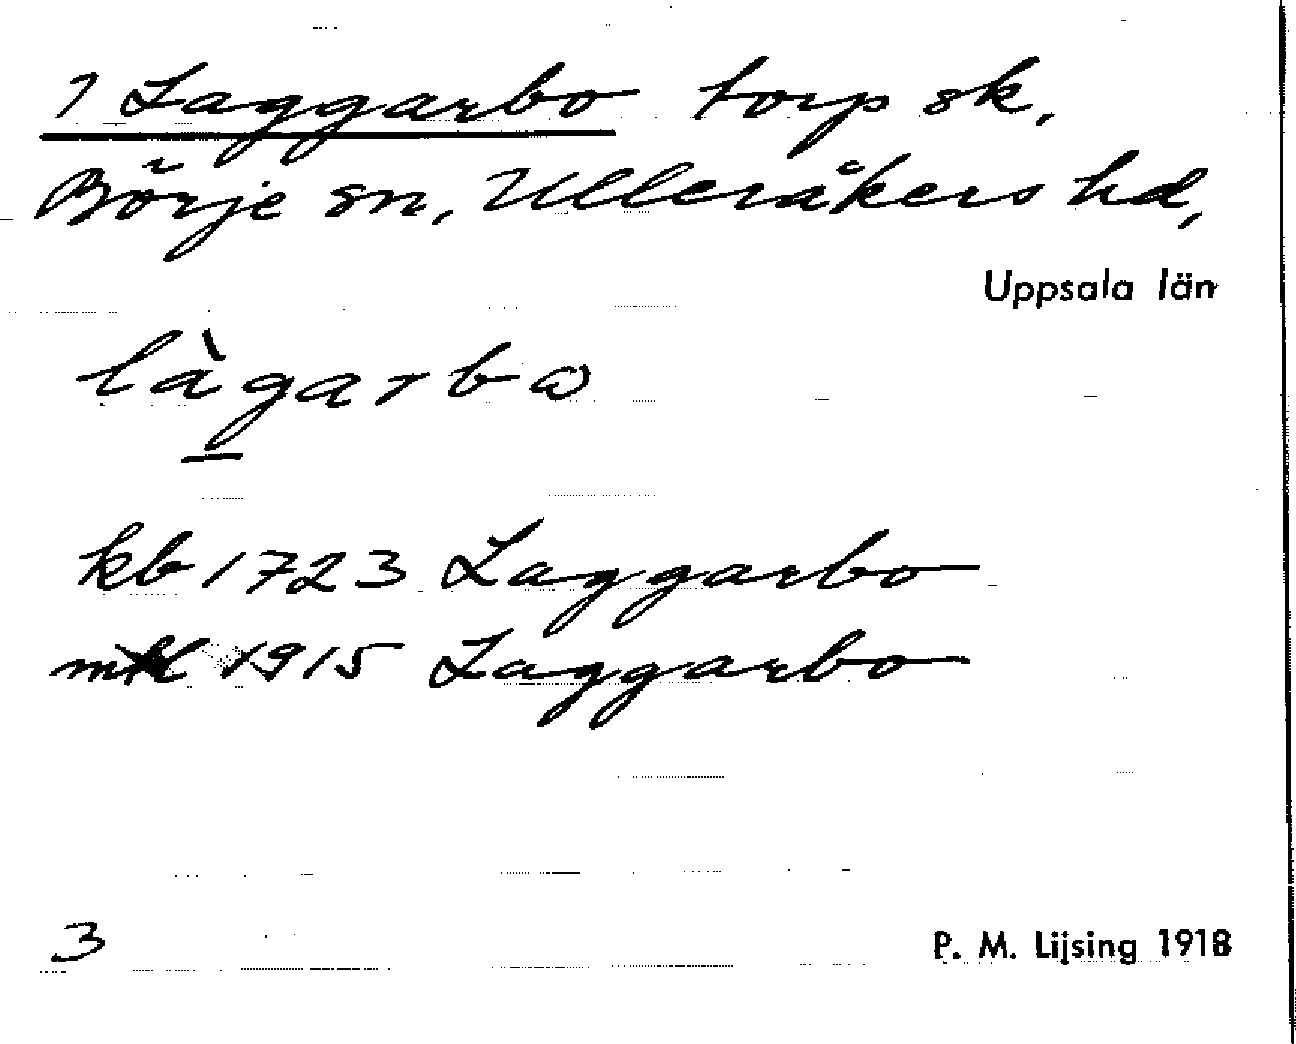 1 Laggarbo torp sk,
Börje sn, Ulleråkers hd,
Uppsala län
làgarbω
kb 1723 Laggarbo
1915 Laggarbo
3
P. M. Lijsing 1918